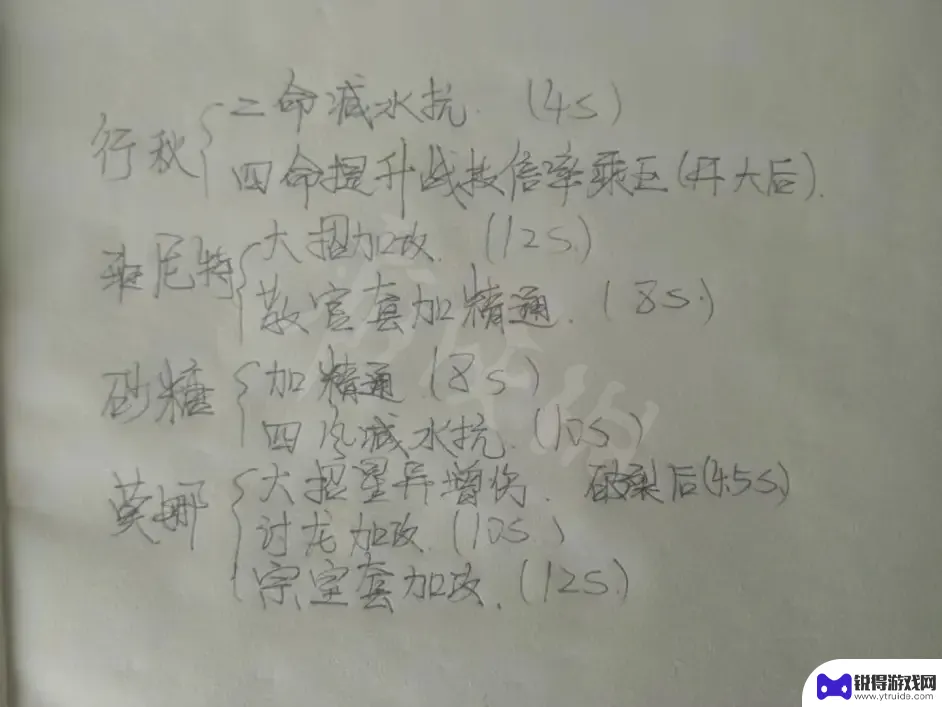 行秋
二命减水抗. (4s)
四命提升战技倍率乘区(开大后).
班尼特
大招加攻. (12s.)
教官套加精通. (8s.)
砂糖
加精通 (8s)
四风减水抗. (10s)
莫娜
大招星异增伤. 破裂后(4.5s.)
讨龙加攻. (10s.)
宗室套加攻. (12s.)
锐得游戏网
www.ytruida.com